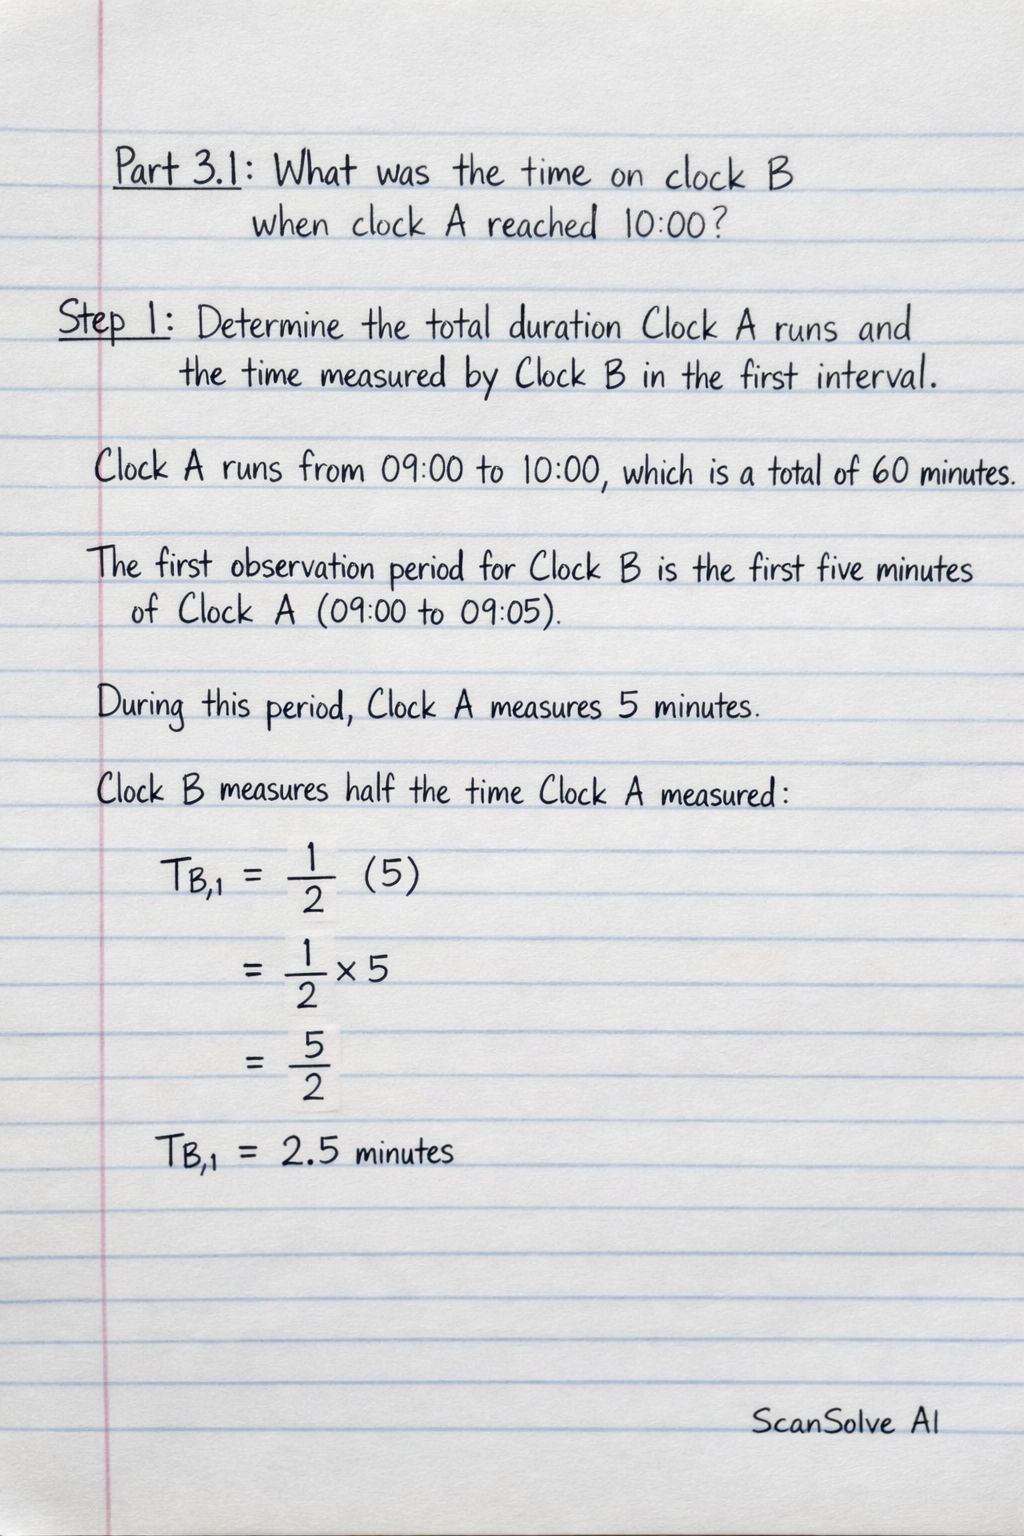 Part 3.1: What was the time on clock B
when clock A reached 10:00?
Step 1: Determine the total duration Clock A runs and
the time measured by Clock B in the first interval.
Clock A runs from 09:00 to 10:00, which is a total of 60 minutes.
The first observation period for Clock B is the first five minutes
of Clock A (09:00 to 09:05).
During this period, Clock A measures 5 minutes.
Clock B measures half the time Clock A measured:
T_B,1 = 1/2 (5)
= 1/2 × 5
= 5/2
T_B,1 = 2.5 minutes
ScanSolve AI